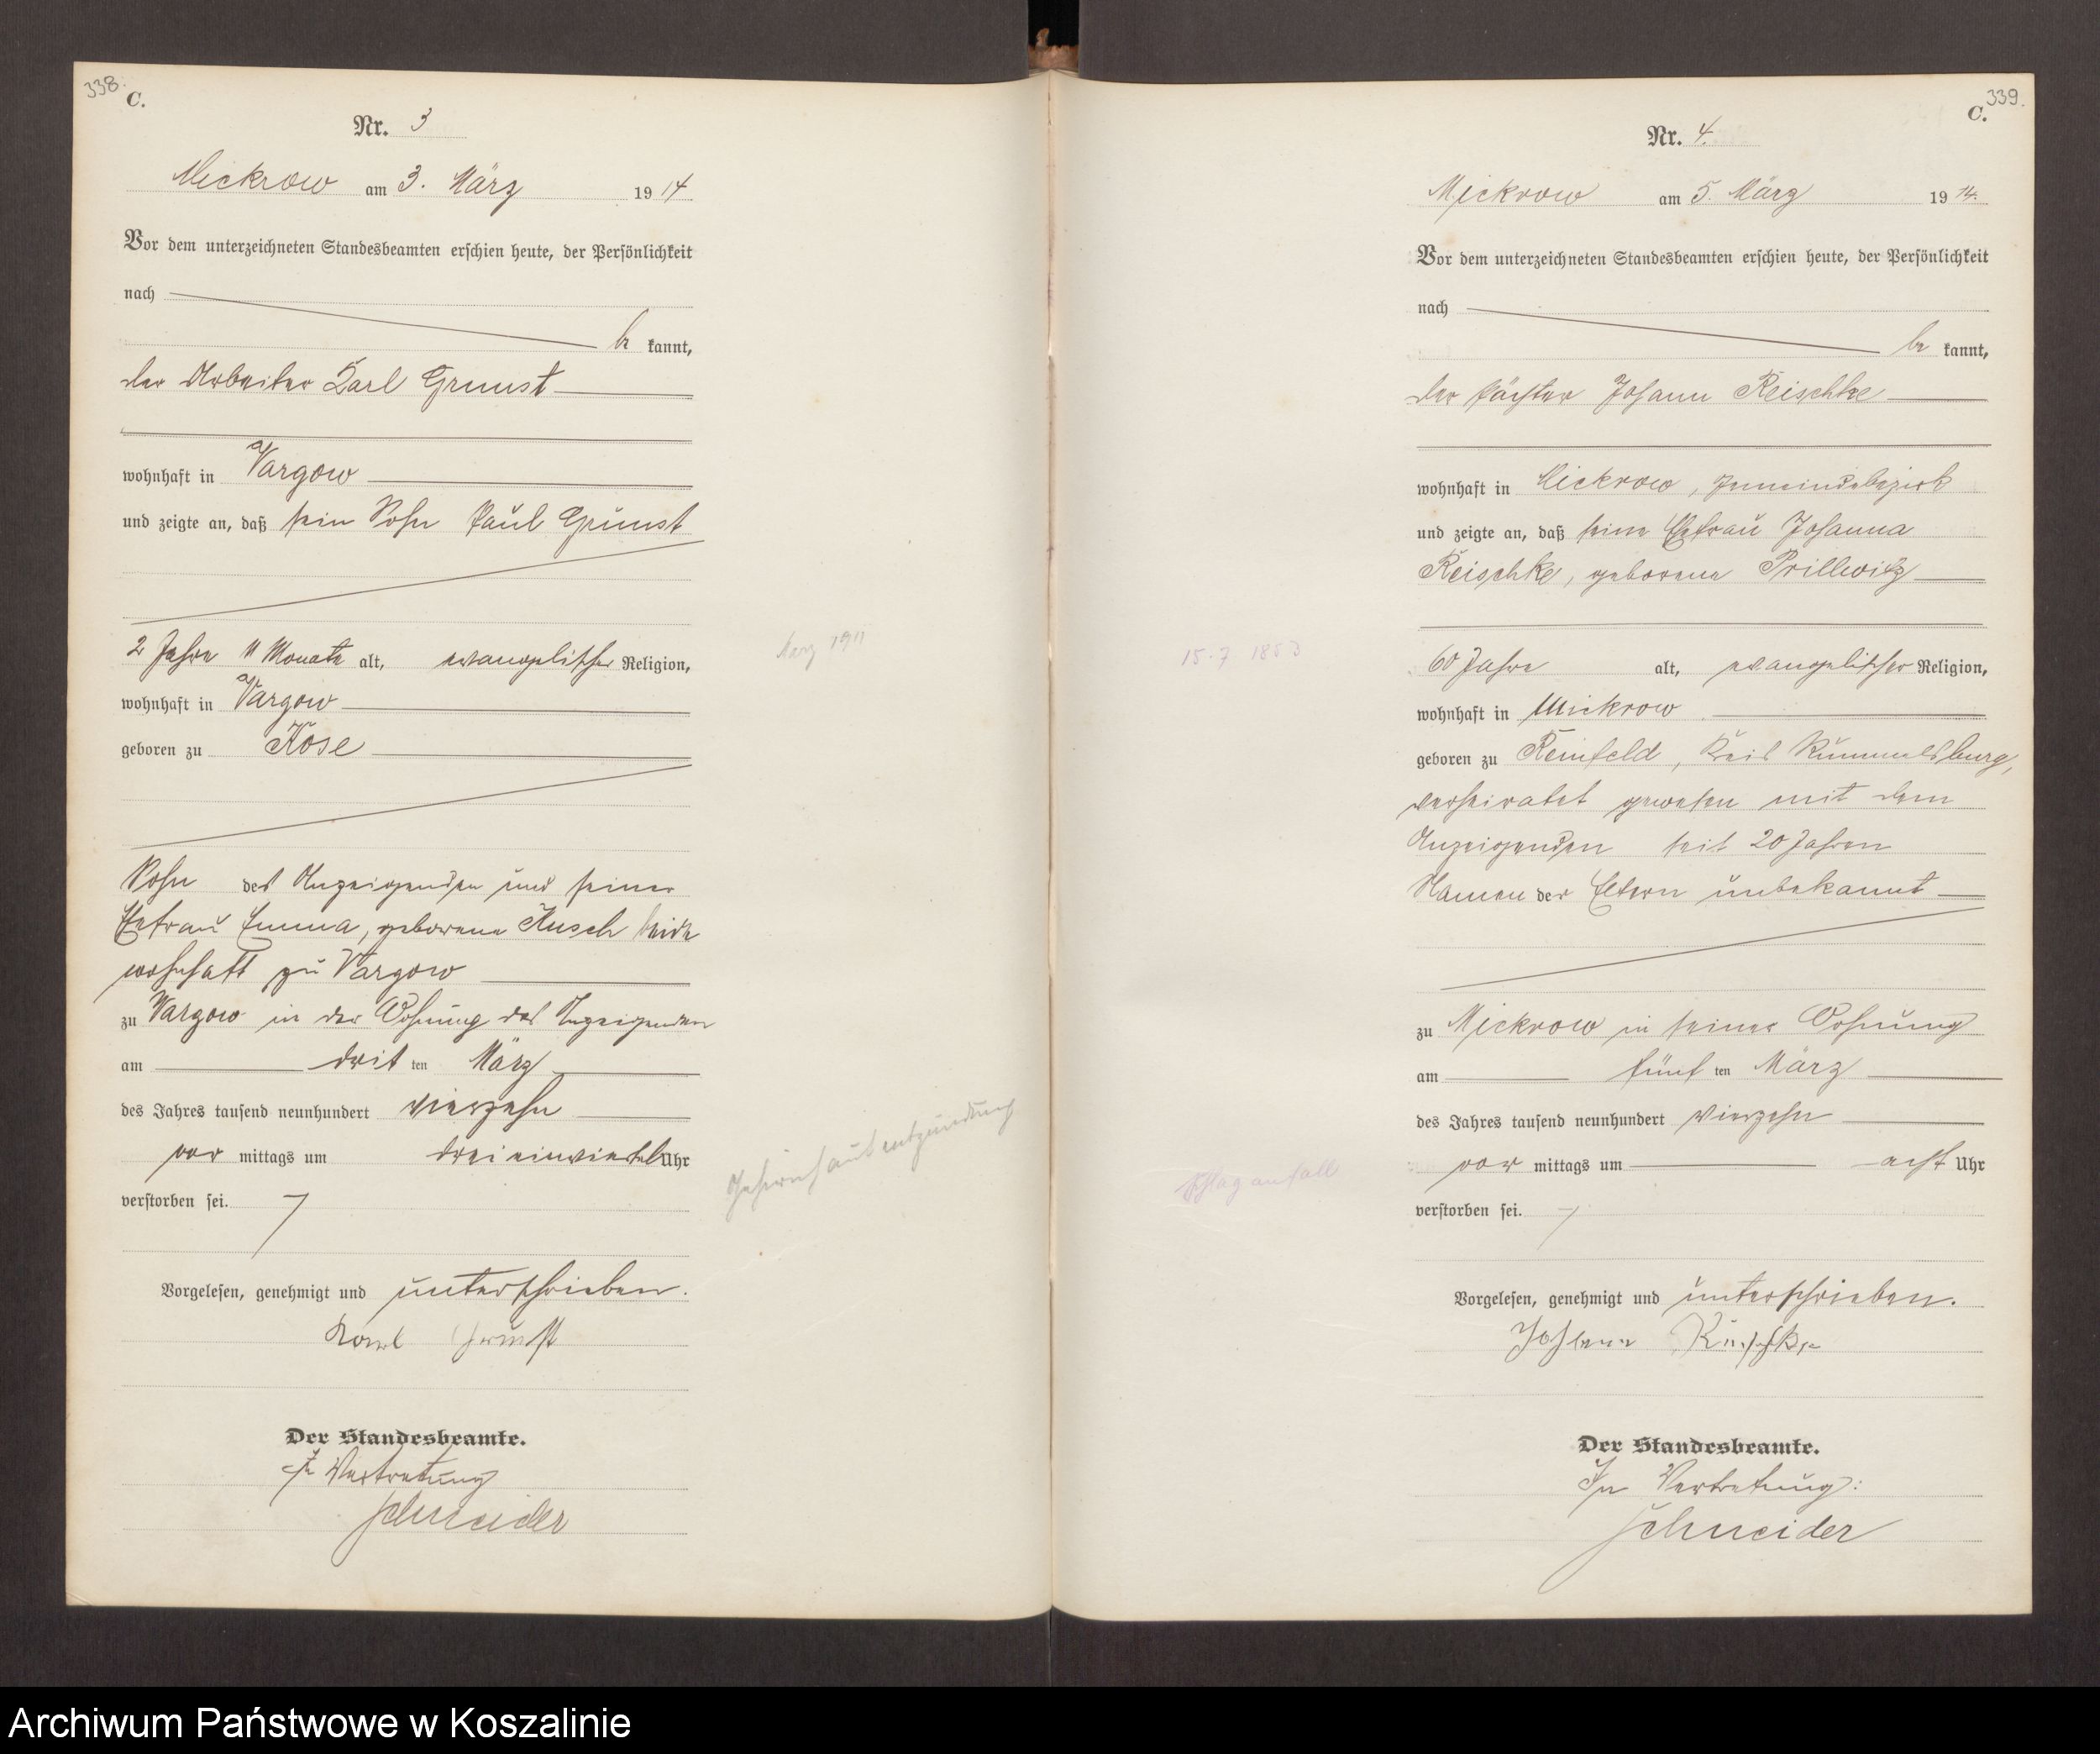 338.
C.
Nr. 3
Mickrow am 3. März 1914
Vor dem unterzeichneten Standesbeamten erschien heute, der Persönlichkeit
nach
be kannt,
der Arbeiter Karl Grunst
wohnhaft in Vargow
und zeigte an, daß sein Sohn Paul Grunst
2 Jahre 11 Monate alt, evangelischer Religion,
wohnhaft in Vargow
geboren zu Kose
Sohn des Anzeigenden und seiner
Ehefrau Emma, geborene Kusch beide
wohnhaft zu Vargow
zu Vargow in der Wohnung des Anzeigenden
am drit ten März
des Jahres tausend neunhundert vierzehn
vor mittags um drei einviertel Uhr
verstorben sei.
Vorgelesen, genehmigt und unterschrieben.
Karl Grunst
Der Standesbeamte.
In Vertretung
Schneider
März 1911
Gehirnhautentzündung
339.
C.
Nr. 4.
Mickrow am 5. März 1914.
Vor dem unterzeichneten Standesbeamten erschien heute, der Persönlichkeit
nach
be kannt,
der Pächter Johann Reischke
wohnhaft in Mickrow, Gemeindebezirk
und zeigte an, daß seine Ehefrau Johanna
Reischke, geborene Prillwitz
60 Jahre alt, evangelischer Religion,
wohnhaft in Mickrow
geboren zu Reinfeld, Kreis Rummelsburg,
verheiratet gewesen mit dem
Anzeigenden seit 20 Jahren
Namen der Eltern unbekannt
zu Mickrow in seiner Wohnung
am fünf ten März
des Jahres tausend neunhundert vierzehn
vor mittags um acht Uhr
verstorben sei.
Vorgelesen, genehmigt und unterschrieben.
Johann Reischke
Der Standesbeamte.
In Vertretung:
Schneider
15.7 1853
Schlaganfall
Archiwum Państwowe w Koszalinie